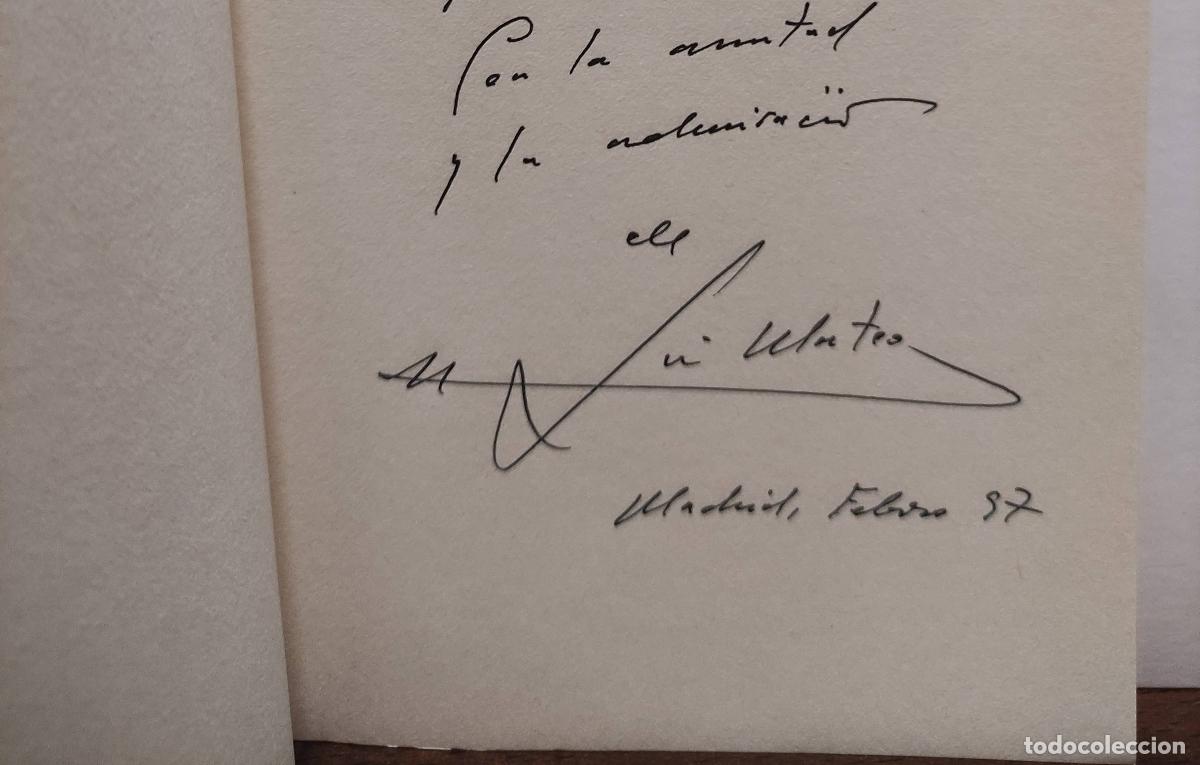 Con la amistad
y la admiración
de
Mateo
Madrid, Febrero 97
todocoleccion